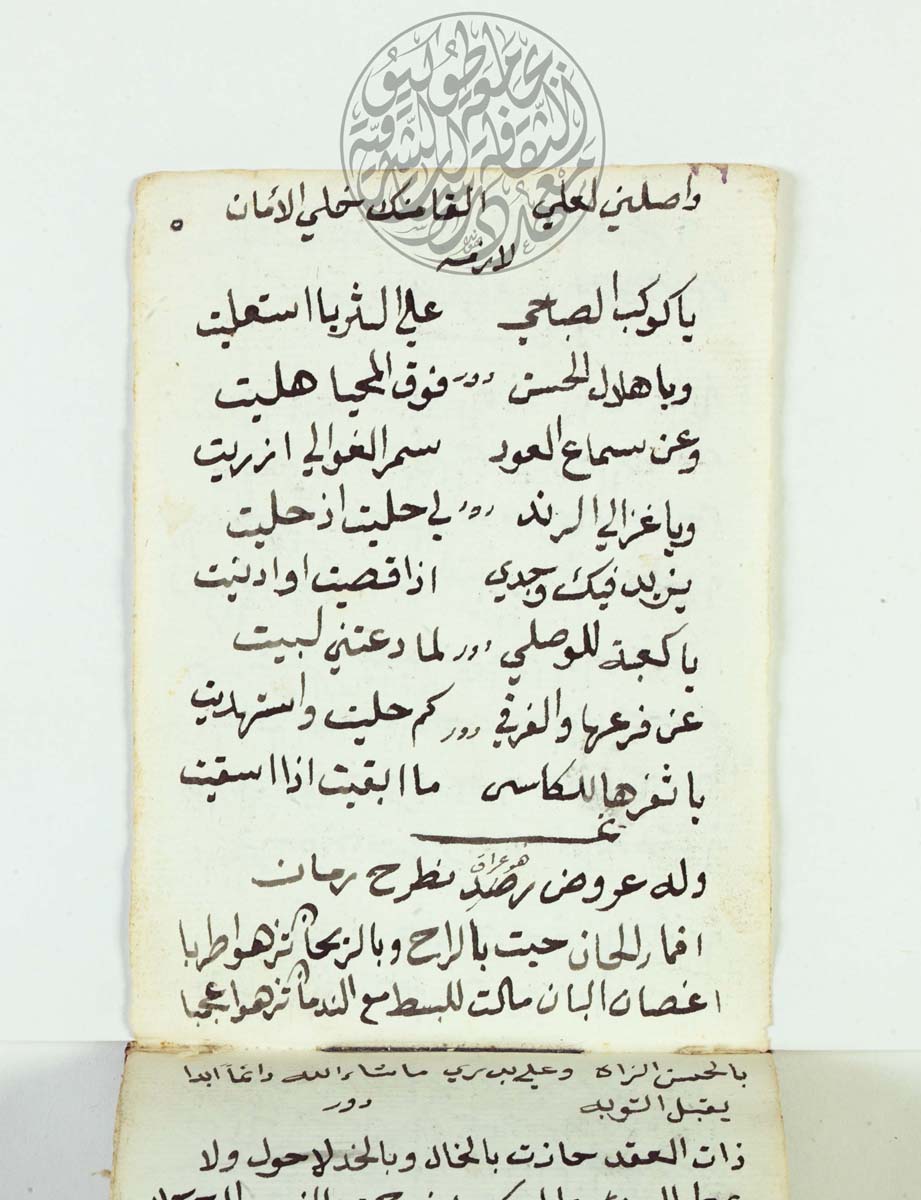 واصلني لعلي القا منك خلي الأمان
لازمه
يا كوكب الصباحي علي الثريا استعليت
ويا هلال الحسن دور فوق المحيا هليت
وعن سماع العود سمر الغوالي ازريت
ويا غزالي الرند دور لي حليت اذ حليت
يزيد فيك وجدي اذا قصيت او ادنيت
يا كعبة للوصلي دور لما دعتني لبيت
عن فرعها والفرقي دور كم حليت واستهديت
يا ثغرها للكاسي ما ابقيت اذا اسقيت
وله عروض رصد هو عراق نطرح رمان
اقمار الحان حيت بالراح وبالريحان تزهوا طربا
اغصان البان مالت للبسط مع الندمان تزهوا عجبا
بالحسن الزاه وعلي بدري ما شاء الله دائما ابدا
يقبل التوبه دور
ذات العقد حازت بالخال وبالخد لا حول ولا